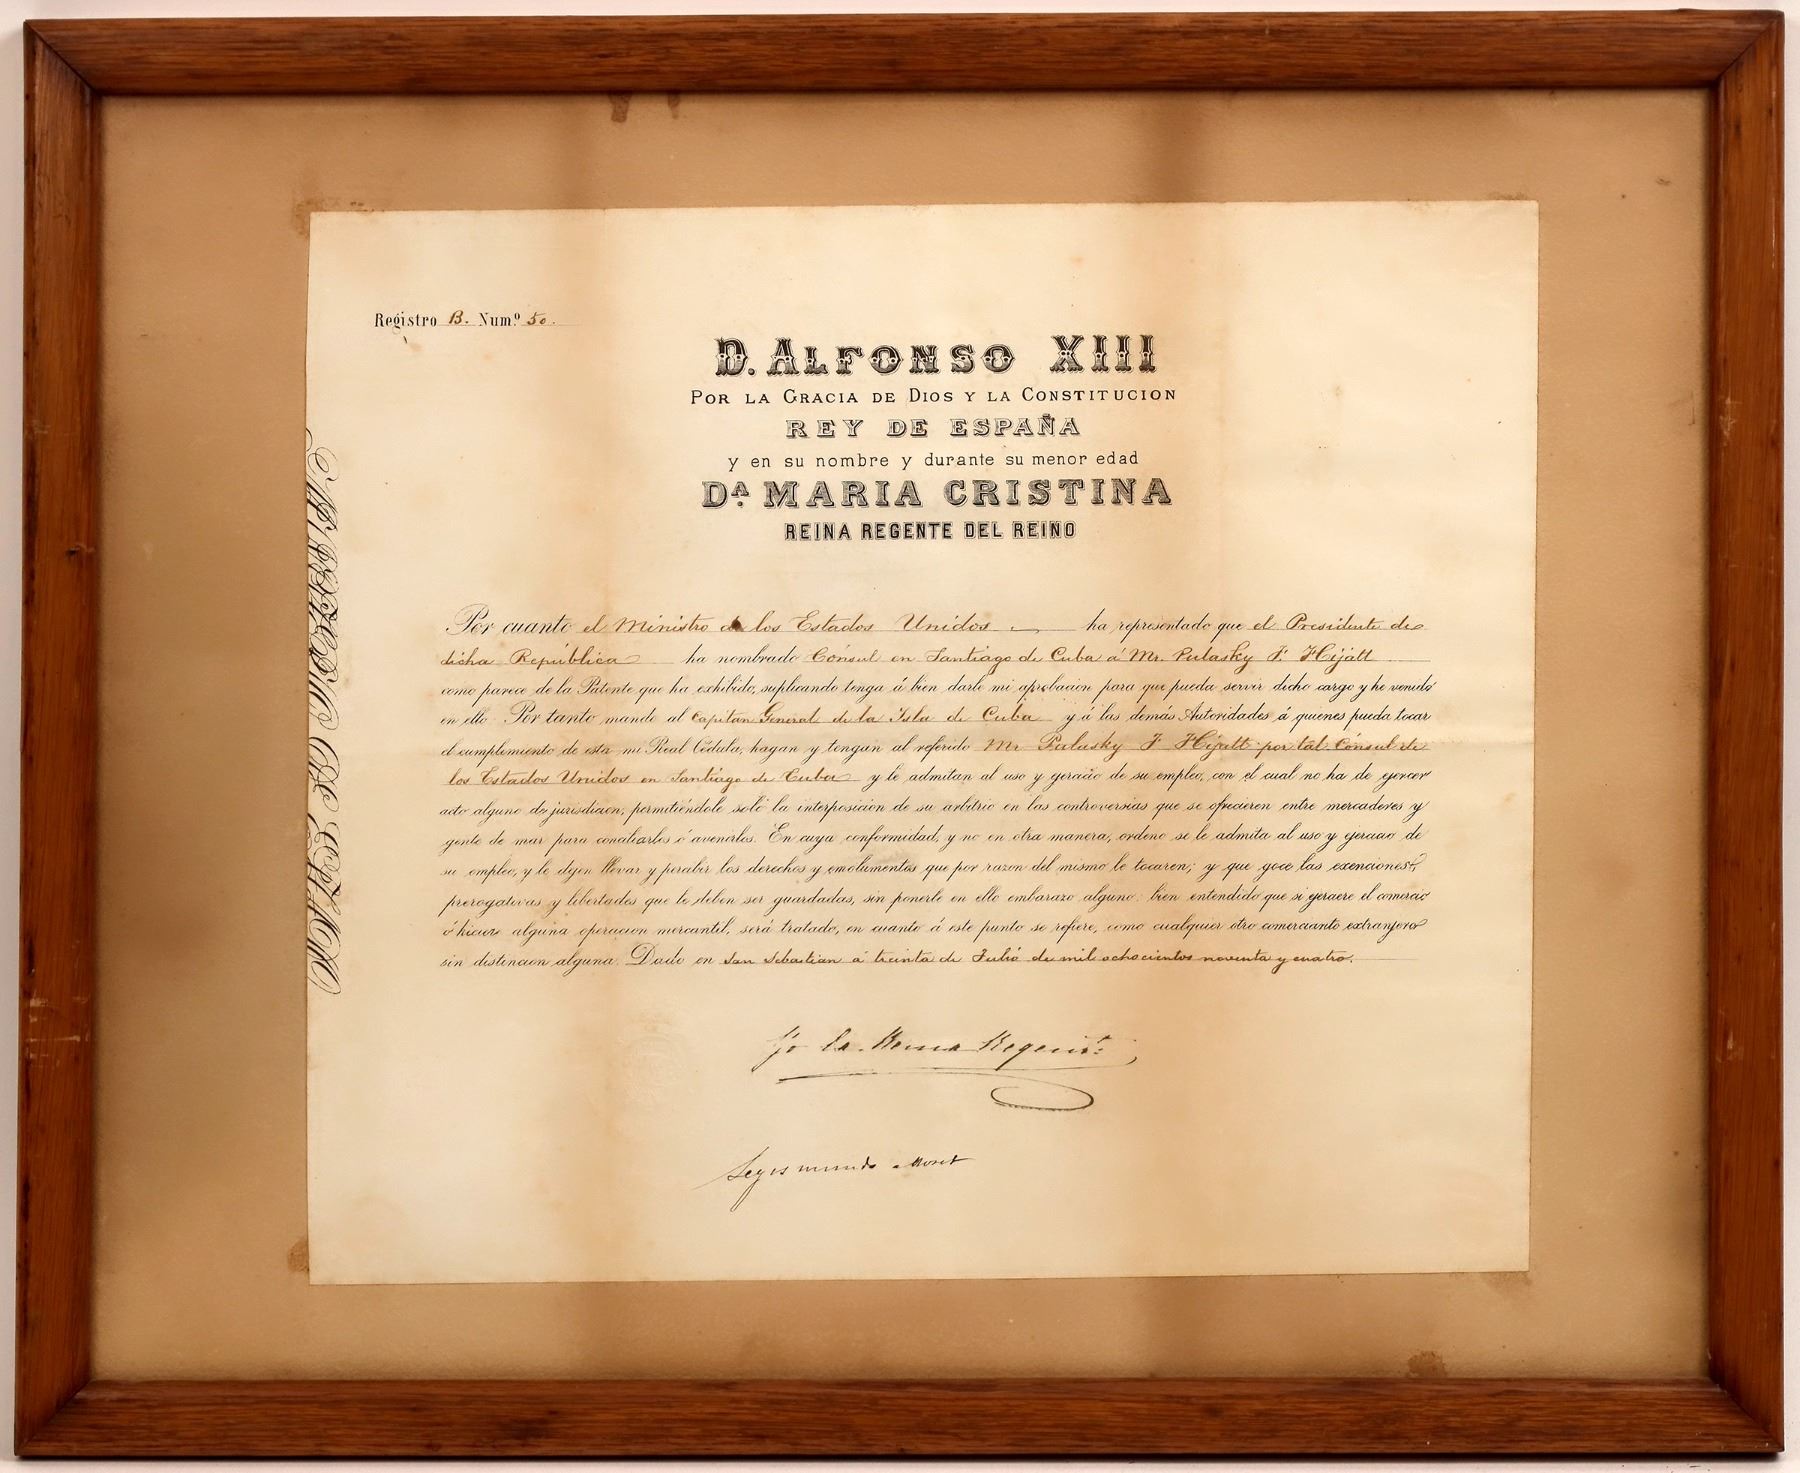 Registro B. Num.º 50.
D. ALFONSO XIII
POR LA GRACIA DE DIOS Y LA CONSTITUCION
REY DE ESPAÑA
y en su nombre y durante su menor edad
Dª. MARIA CRISTINA
REINA REGENTE DEL REINO
Por cuanto el Ministro de los Estados Unidos ha representado que el Presidente de
dicha República ha nombrado Cónsul en Santiago de Cuba á Mr. Pulasky F. Hijatt
como parece de la Patente que ha exhibido, suplicando tenga á bien darle mi aprobacion para que pueda servir dicho cargo y he venido
en ello. Por tanto mando al Capitan General de la Isla de Cuba y á las demás Autoridades á quienes pueda tocar
el cumplemiento de esta mi Real Cédula, hagan y tengan al referido Mr Pulasky F Hijatt por tal Cónsul de
los Estados Unidos en Santiago de Cuba y le admitan al uso y ejercicio de su empleo, con el cual no ha de ejercer
acto alguno de jurisdicion, permitiéndole solo la interposicion de su arbitrio en las controversias que se ofrecieren entre mercaderes y
gente de mar para conciliarlos ó avenirlos. En cuya conformidad, y no en otra manera, ordeno se le admita al uso y ejercicio de
su empleo, y le dejen llevar y percibir los derechos y emolumentos que por razon del mismo le tocaren; y que goce las exenciones,
prerogativas y libertades que le deben ser guardadas, sin ponerle en ello embarazo alguno: bien entendido que si ejerciere el comercio
ó hiciere alguna operacion mercantil, será tratado, en cuanto á este punto se refiere, como cualquier otro comerciante extranjero
sin distincion alguna. Dado en San Sebastian á treinta de Julio de mil ochocientos noventa y cuatro.
Yo la Reina Regente
Segismundo Moret